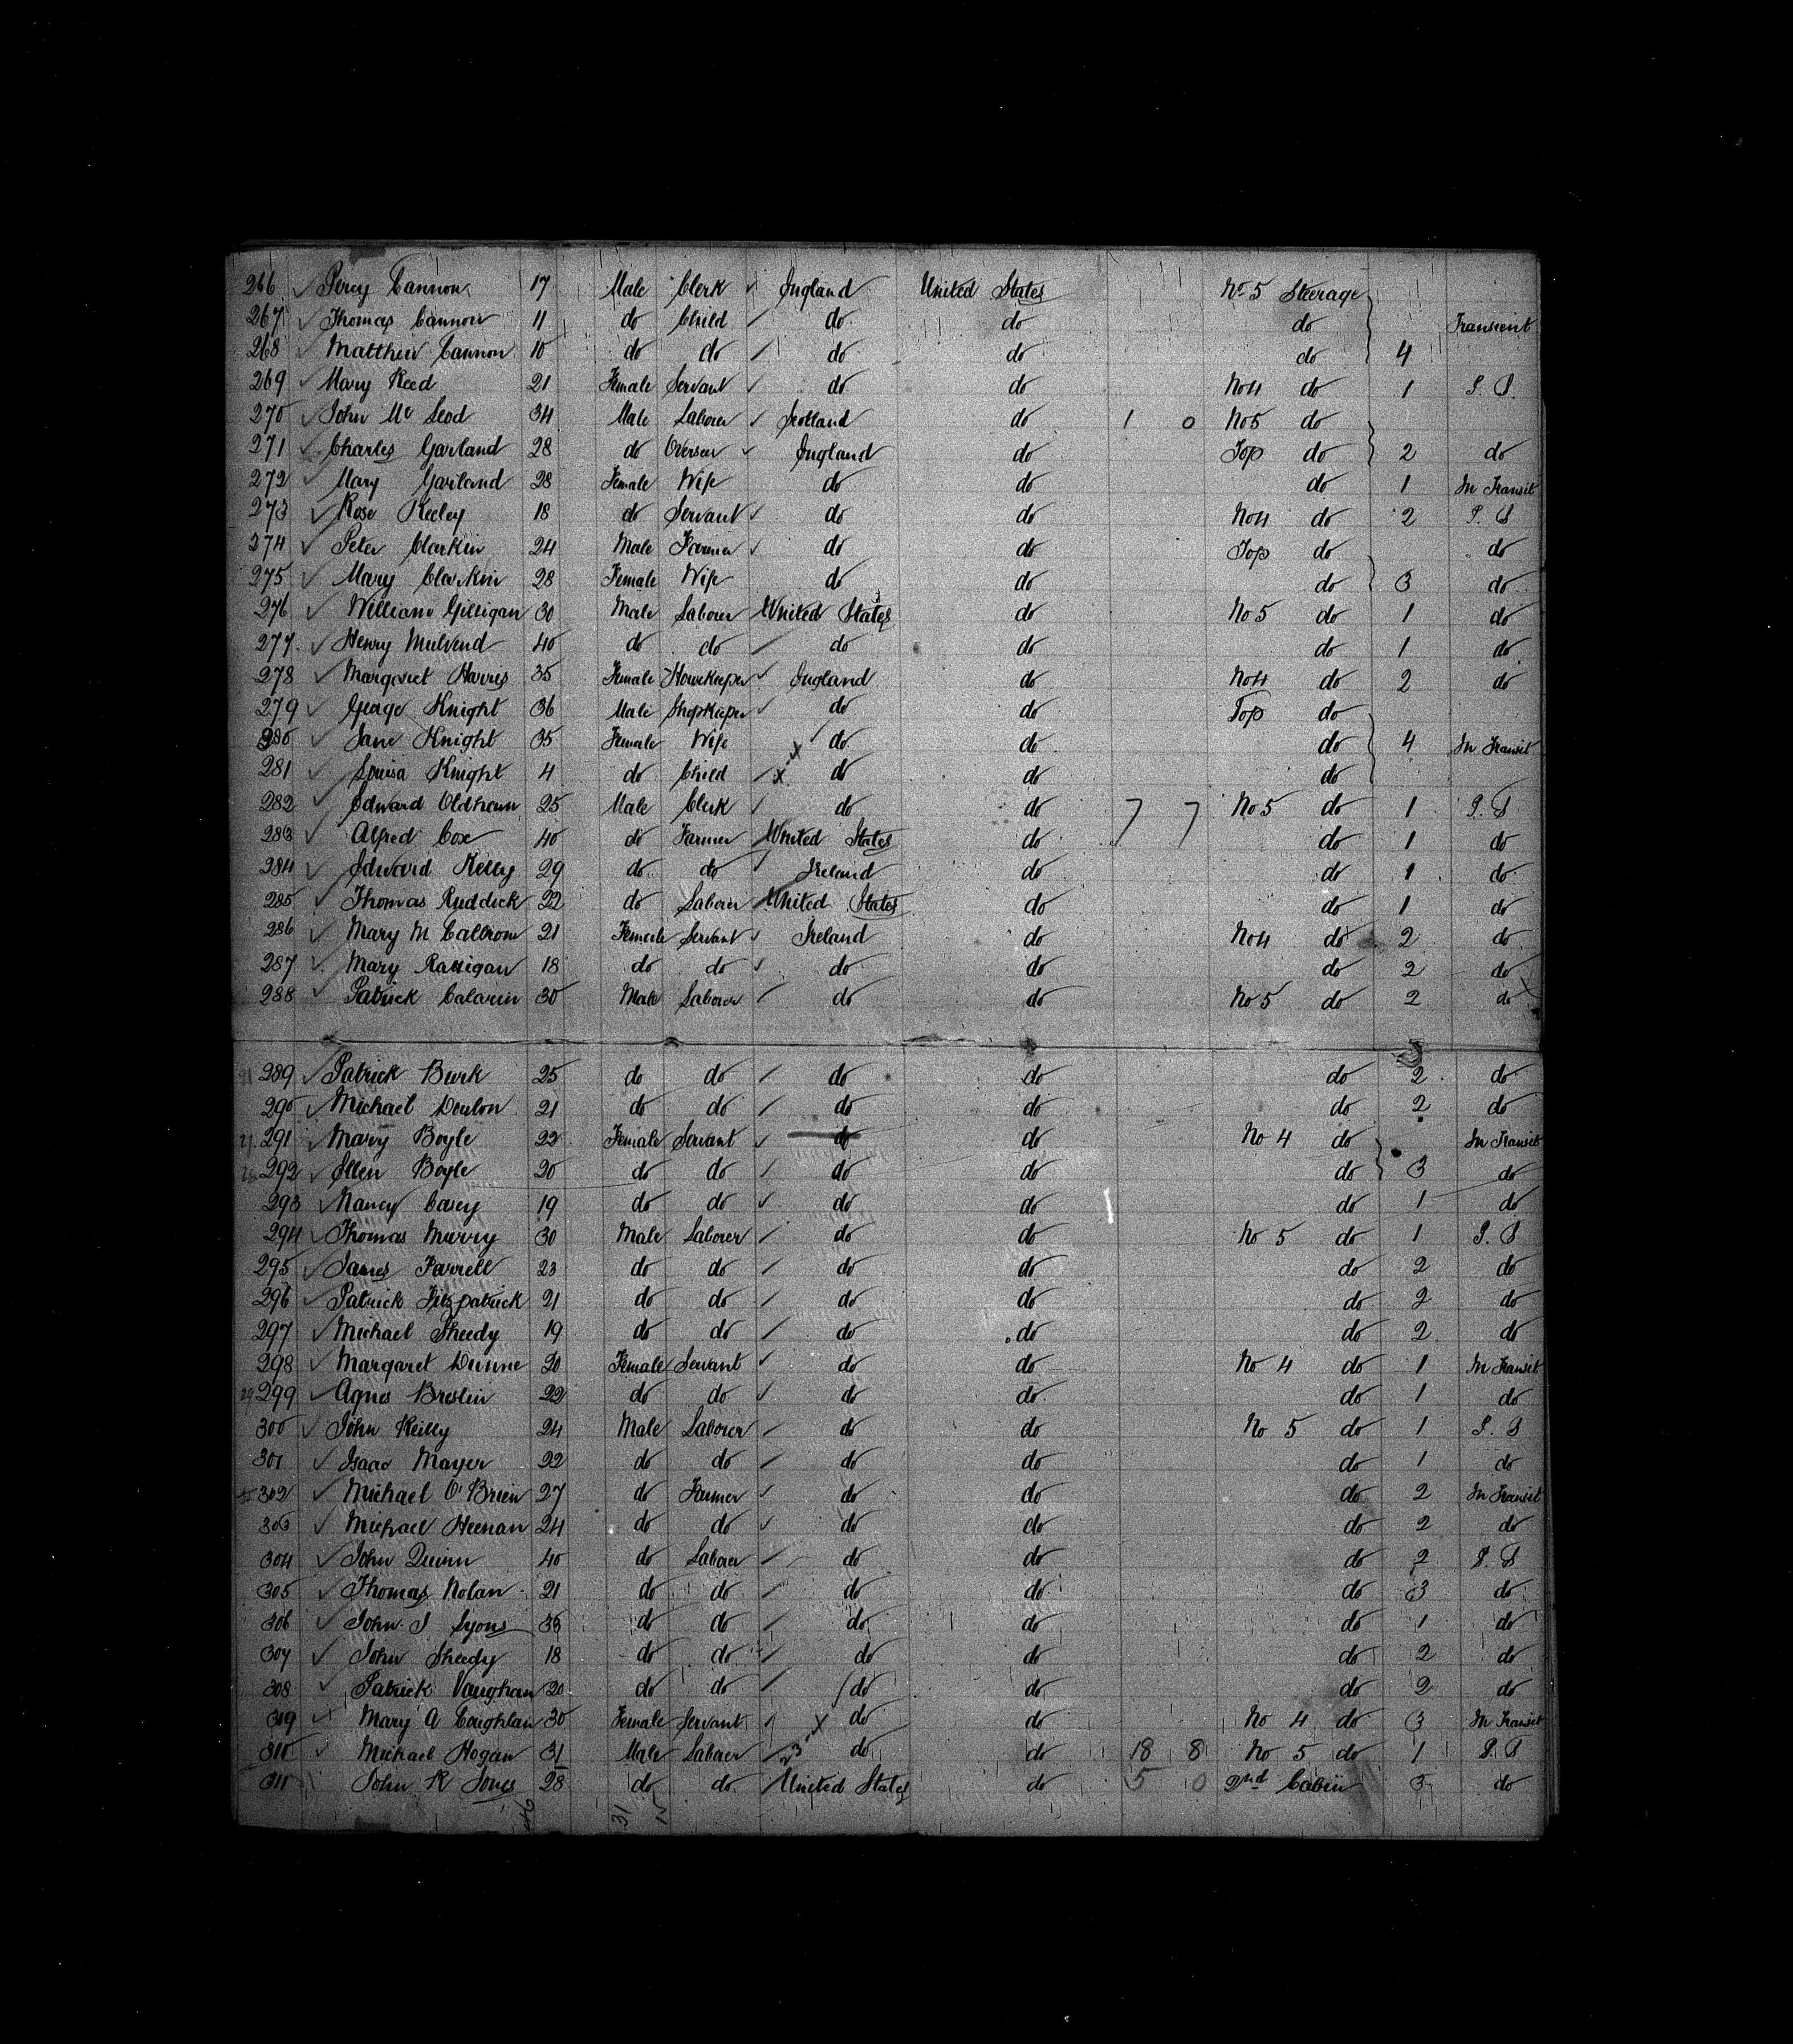 266 ✓ Percy Cannon 17 Male Clerk ✓ England United States No 5 Steerage
267 ✓ Thomas Cannon 11 do Child do do do Transient
268 ✓ Matthew Cannon 10 do do do do do 4
269 ✓ Mary Reed 21 Female Servant ✓ do do No 4 do 1 P. S.
270 ✓ John Mc Leod 34 Male Laborer ✓ Scotland do 1 0 No 5 do
271 ✓ Charles Garland 28 do Overseer ✓ England do Top do 2 do
272 ✓ Mary Garland 28 Female Wife do do do 1 In Transit
273 ✓ Rose Keeley 18 do Servant ✓ do do No 4 do 2 P. S
274 ✓ Peter Clarkin 24 Male Farmer ✓ do do Top do do
275 ✓ Mary Clarkin 28 Female Wife do do do 3 do
276 ✓ William Gilligan 30 Male Laborer United States do No 5 do 1 do
277 ✓ Henry 40 do do do do do 1 do
278 ✓ Margaret Harris 35 Female Housekeeper ✓ England do No 4 do 2 do
279 ✓ George Knight 36 Male Shopkeeper ✓ do do Top do
280 ✓ Jane Knight 35 Female Wife x do do do 4 In Transit
281 ✓ Louisa Knight 4 do Child x do do do
282 ✓ Edward Oldham 25 Male Clerk ✓ do do 7 7 No 5 do 1 P. S
283 ✓ Alfred Cox 40 do Farmer United States do do 1 do
284 ✓ Edward Kelly 29 do do Ireland do do 1 do
285 ✓ Thomas Ruddick 22 do Laborer United States do do 1 do
286 ✓ Mary M 21 Female Servant ✓ Ireland do No 4 do 2 do
287 ✓ Mary Rattigan 18 do do ✓ do do do 2 do
288 ✓ Patrick 30 Male Laborer do do No 5 do 2 do
289 ✓ Patrick Burk 25 do do do do do 2 do
290 ✓ Michael 21 do do do do do 2 do
291 ✓ Mary Boyle 22 Female Servant ✓ do do No 4 do In Transit
292 ✓ Ellen Boyle 20 do do do do do 3 do
293 ✓ Nancy Casey 19 do do ✓ do do do 1 do
294 ✓ Thomas Murry 30 Male Laborer do do No 5 do 1 P. S
295 ✓ James Farrell 23 do do do do do 2 do
296 ✓ Patrick Fitzpatrick 21 do do do do do 2 do
297 ✓ Michael Sheedy 19 do do do do do 2 do
298 ✓ Margaret Dunne 20 Female Servant ✓ do do No 4 do 1 In Transit
299 ✓ Agnes Breslin 22 do do ✓ do do do 1 do
300 ✓ John Reilly 24 Male Laborer do do No 5 do 1 P. S
301 ✓ Isaac Mayer 22 do do do do do 1 do
302 ✓ Michael O'Brien 27 do Farmer do do do 2 In Transit
303 ✓ Michael Heenan 24 do do ✓ do do do 2 do
304 ✓ John Quinn 40 do Laborer do do do 2 P. S
305 ✓ Thomas Nolan 21 do do do do do 3 do
306 ✓ John J Lyons 35 do do do do do 1 do
307 ✓ John Sheedy 18 do do do do do 2 do
308 ✓ Patrick Vaughan 20 do do do do do 2 do
309 ✓ Mary A Coughlan 30 Female Servant x do do No 4 do 3 In Transit
310 ✓ Michael Hogan 31 Male Laborer 23 do do 18 8 No 5 do 1 P. S
311 John R Jones 28 do do United States do 5 0 2nd Cabin 3 do
46 31 15